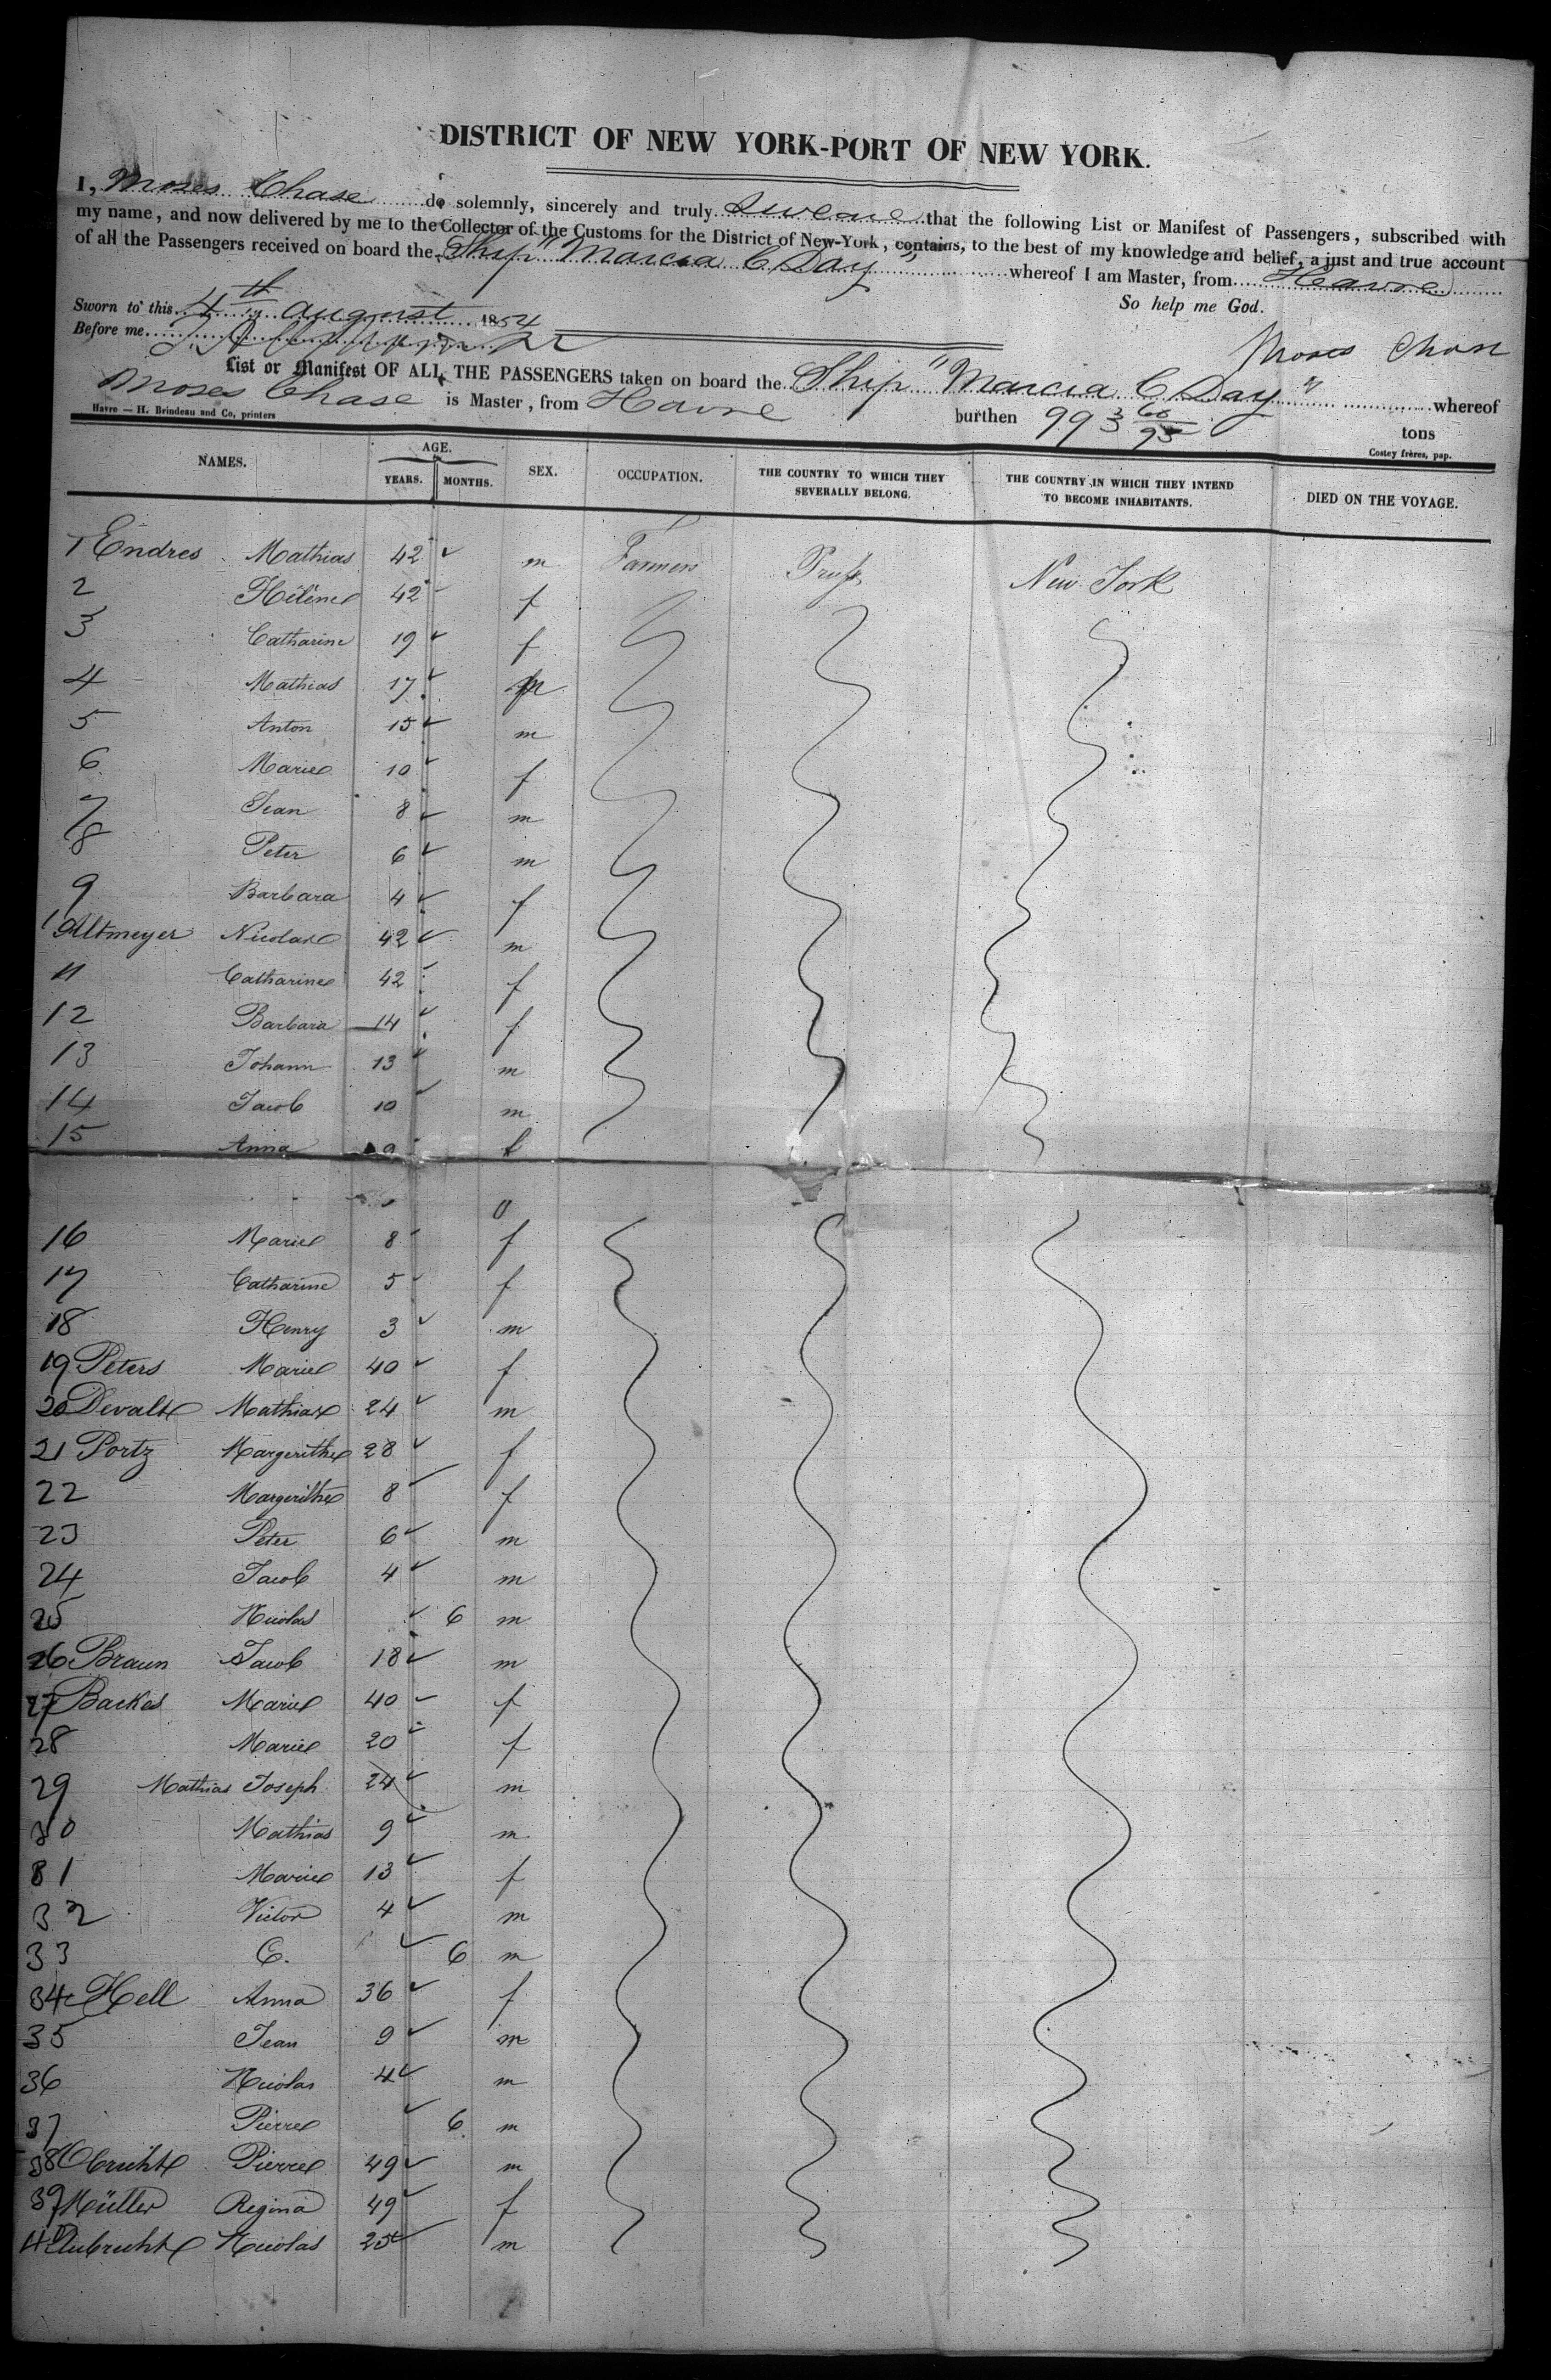 DISTRICT OF NEW YORK-PORT OF NEW YORK.
I, Moses Chase do solemnly, sincerely and truly Swear that the following List or Manifest of Passengers, subscribed with
my name, and now delivered by me to the Collector of the Customs for the District of New-York, contains, to the best of my knowledge and belief, a just and true account
of all the Passengers received on board the Ship "Marcia C Day" whereof I am Master, from Havre
So help me God.
Sworn to this 4th august 1854
Before me
Moses Chase
List or Manifest OF ALL THE PASSENGERS taken on board the Ship "Marcia C Day" whereof
Moses Chase is Master, from Havre burthen 993 60/95 tons
Havre — H. Brindeau and Co, printers
Costey frères, pap.
NAMES. AGE. YEARS. MONTHS. SEX. OCCUPATION. THE COUNTRY TO WHICH THEY SEVERALLY BELONG. THE COUNTRY IN WHICH THEY INTEND TO BECOME INHABITANTS. DIED ON THE VOYAGE.
1 Endres Mathias 42 m Farmers Pruss New York
2 Hélène 42 f
3 Catharine 19 f
4 Mathias 17 m
5 Anton 15 m
6 Marie 10 f
7 Jean 8 m
8 Peter 6 m
9 Barbara 4 f
10 Altmeyer Nicolas 42 m
11 Catharine 42 f
12 Barbara 14 f
13 Johann 13 m
14 Jacob 10 m
15 Anna 9 f
16 Marie 8 f
17 Catharine 5 f
18 Henry 3 m
19 Peters Marie 40 f
20 Devalt Mathias 24 m
21 Portz Margerithe 28 f
22 Margerithe 8 f
23 Peter 6 m
24 Jacob 4 m
25 Nicolas 6 m
26 Braun Jacob 18 m
27 Backes Marie 40 f
28 Marie 20 f
29 Mathias Joseph 24 m
30 Mathias 9 m
31 Marie 13 f
32 Victor 4 m
33 C. 6 m
34 Hell Anna 36 f
35 Jean 9 m
36 Nicolas 4 m
37 Pierre 6 m
38 Obrucht Pierre 49 m
39 Müller Regina 49 f
40 Aubrucht Nicolas 25 m